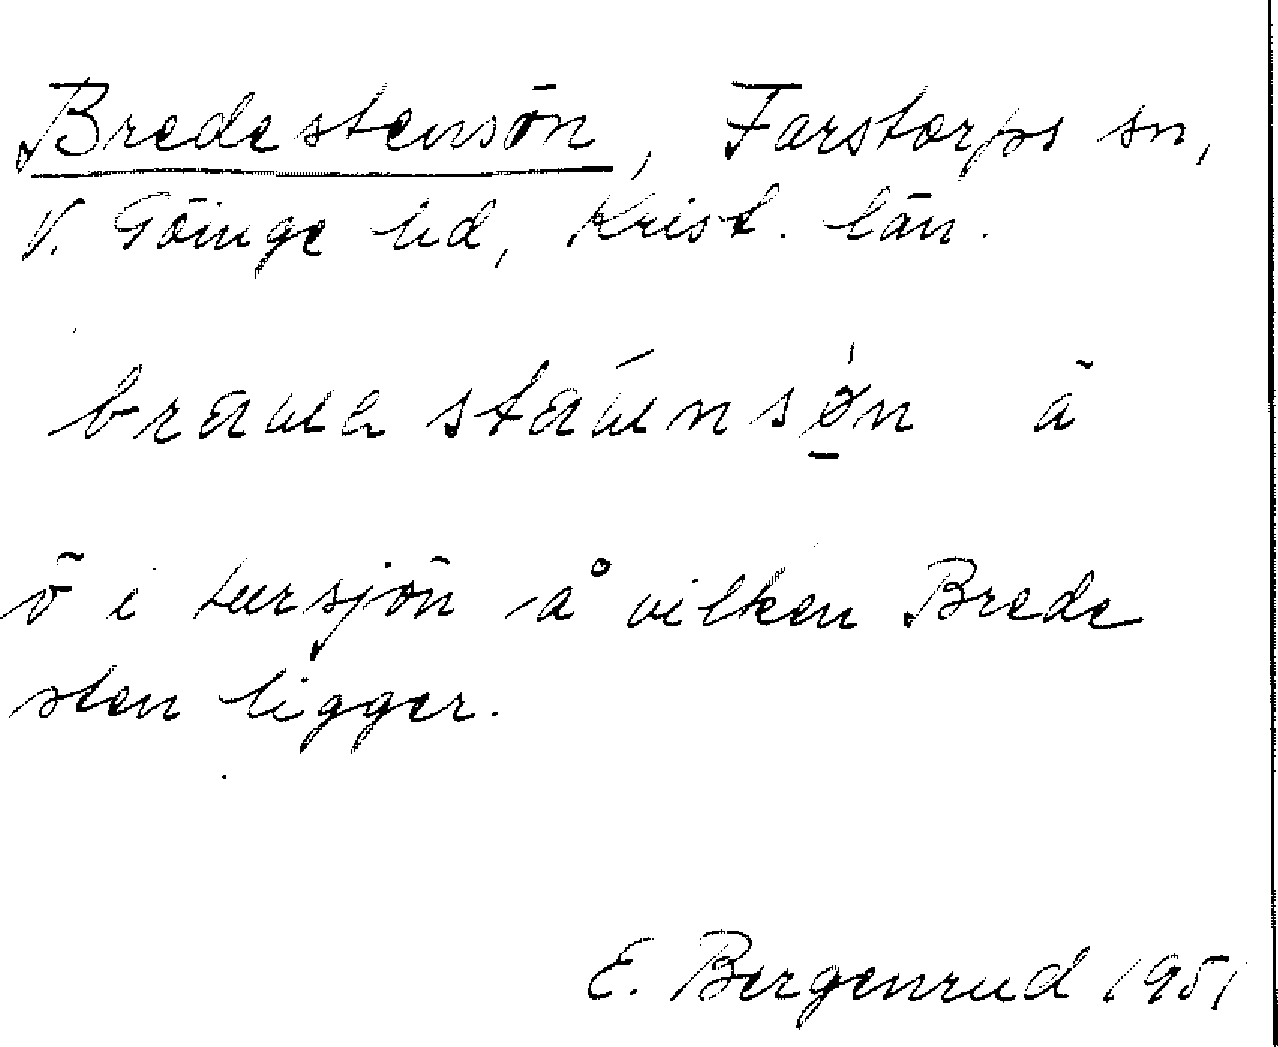 Bredestensön, Farstorps sn,
V. Göinge hd, Krist. län.
ö i Lursjön å vilken Brede
sten ligger.
E. Bergenrud 1951